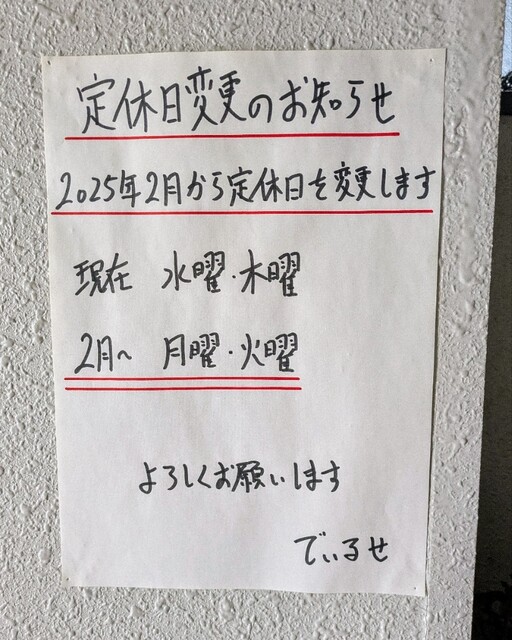 定休日変更のお知らせ
2025年2月から定休日を変更します
現在 水曜・木曜
2月〜 月曜・火曜
よろしくお願いします
でぃるせ